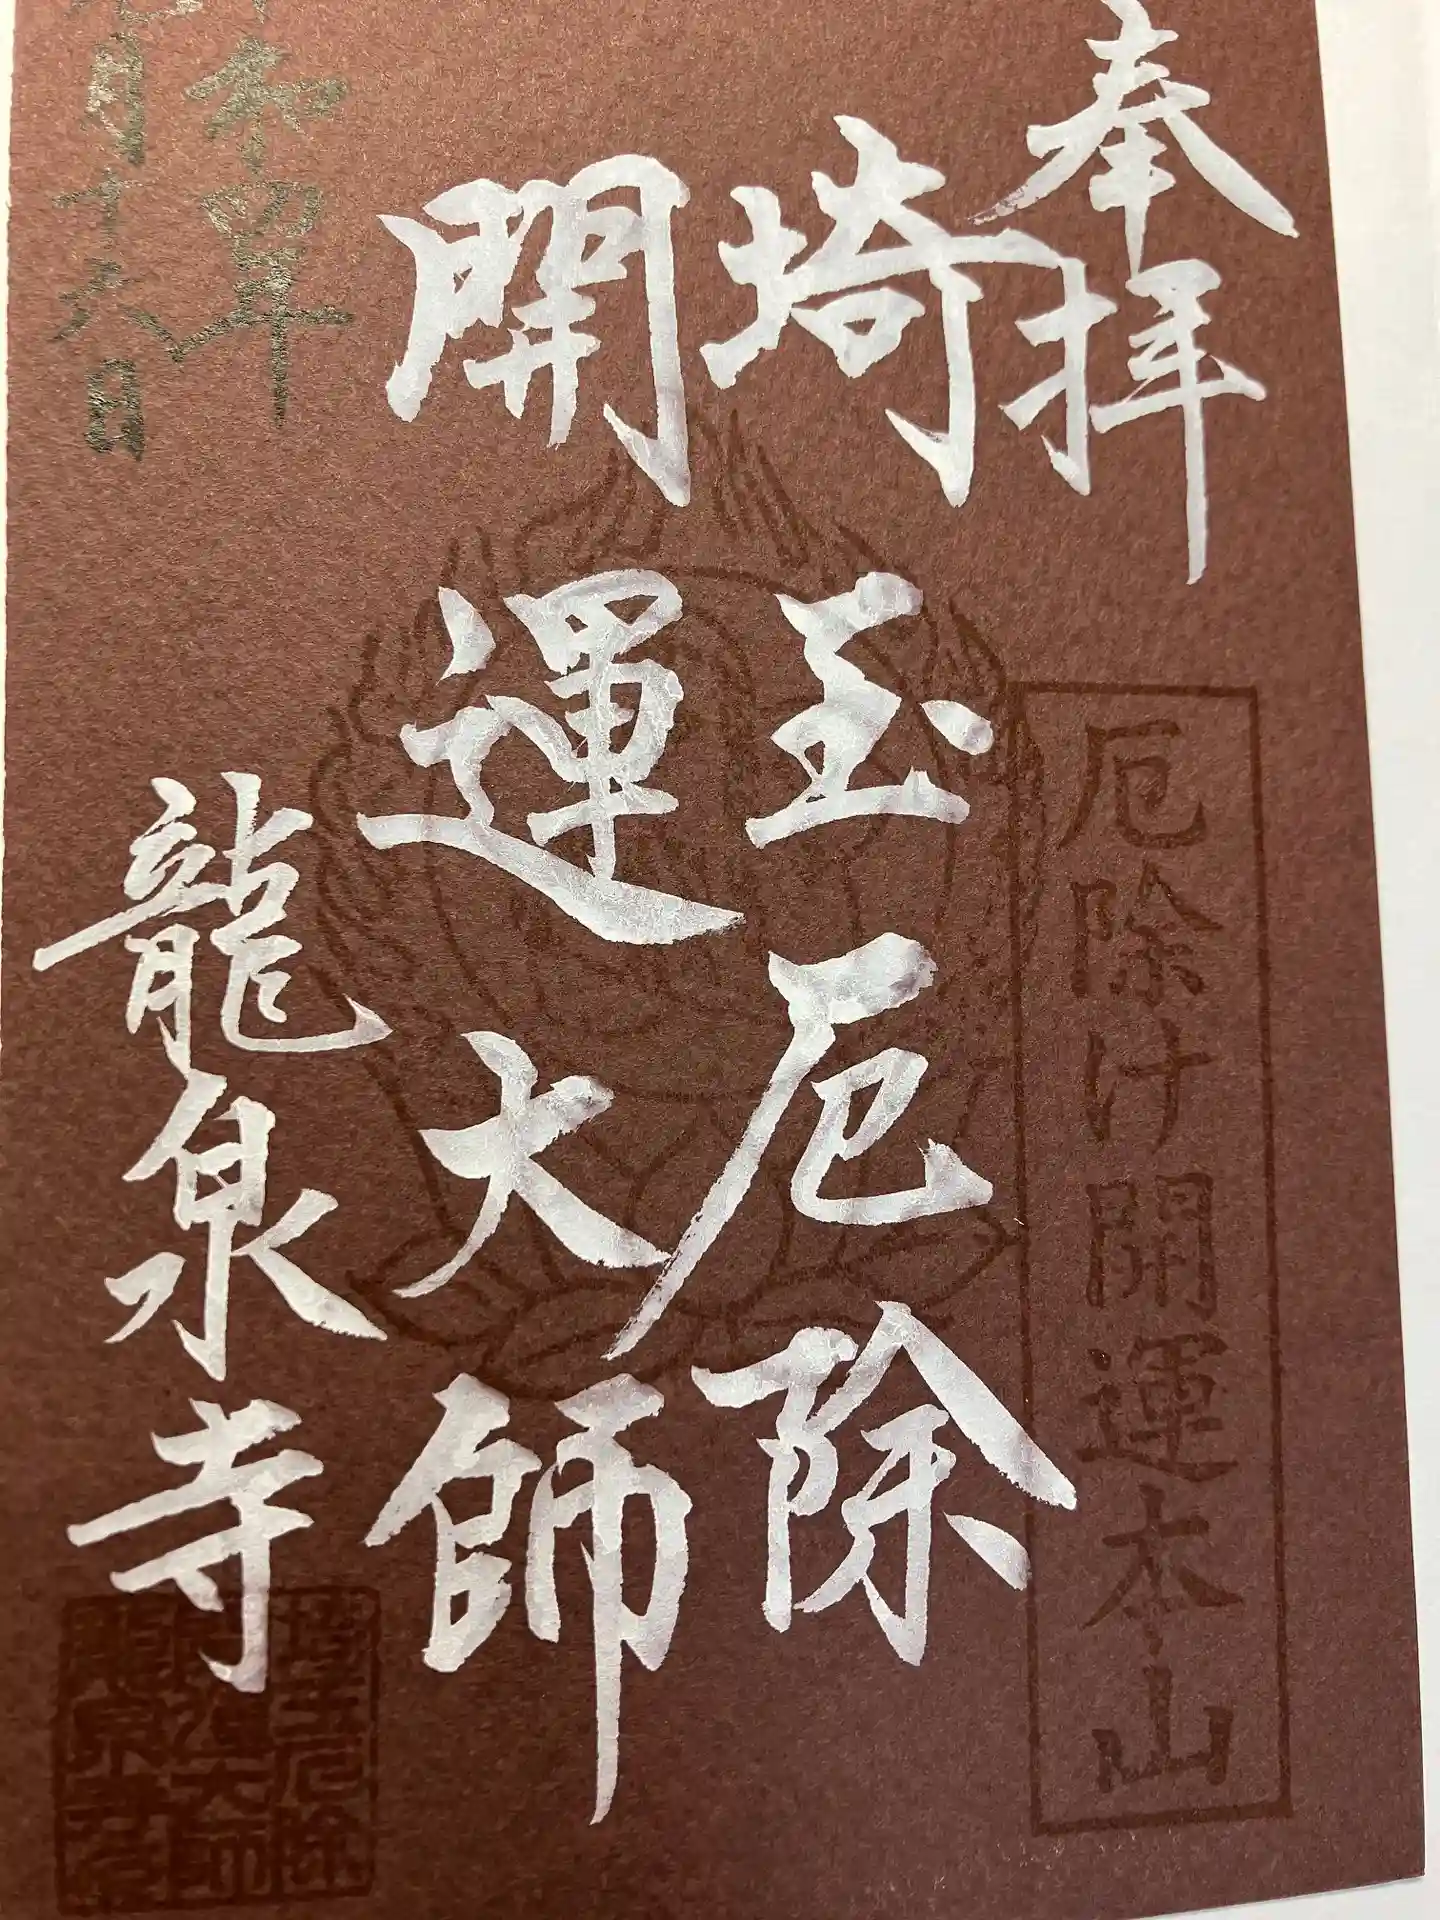 奉拝
厄除け開運本山
埼玉厄除
開運大師
和四年
月十六日
龍泉寺
埼玉厄除
開運大師
龍泉寺